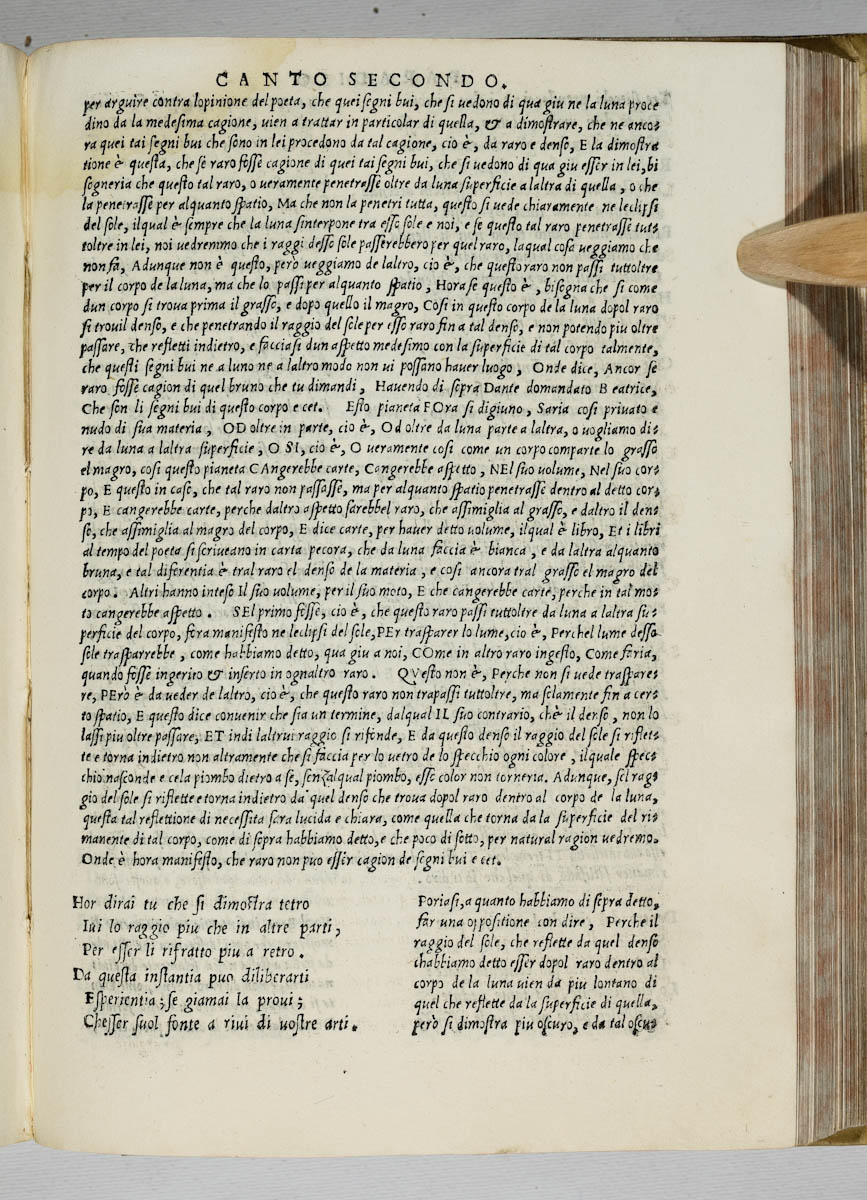 CANTO SECONDO.
per arguire contra lopinione del poeta, che quei segni bui, che si uedono di qua giu ne la luna proce
dino da la medesima cagione, uien a trattar in particolar di quella, & a dimostrare, che ne anco-
ra quei tai segni bui che sono in lei procedono da tal cagione, cio è, da raro e denso, E la dimostra
tione è questa, che se raro fosse cagione di quei tai segni bui, che si uedono di qua giu esser in lei, bi
sogneria che questo tal raro, o ueramente penetresse oltre da luna superficie a laltra di quella, o che
la penetrasse per alquanto spatio, Ma che non la penetri tutta, questo si uede chiaramente ne leclipsi
del sole, ilqual è sempre che la luna sinterpone tra esso sole e noi, e se questo tal raro penetrasse tut-
toltre in lei, noi uedremmo che i raggi desso sole passerebbero per quel raro, laqual cosa ueggiamo che
non fa, Adunque non è questo, però ueggiamo de laltro, cio è, che questo raro non passi tuttoltre
per il corpo de la luna, ma che lo passi per alquanto spatio, Hora se questo è, bisogna che si come
dun corpo si troua prima il grasso, e dopo quello il magro, Cosi in questo corpo de la luna dopol raro
si trouil denso, e che penetrando il raggio del sole per esso raro fin a tal denso, e non potendo piu oltre
passare, che refletti indietro, e facciasi dun aspetto medesimo con la superficie di tal corpo talmente,
che questi segni bui ne a luno ne a laltro modo non ui possano hauer luogo, Onde dice, Ancor se
raro fosse cagion di quel bruno che tu dimandi, Hauendo di sopra Dante domandato Beatrice,
Che son li segni bui di questo corpo e cet. Esto pianeta FOra si digiuno, Saria cosi priuato e
nudo di sua materia, OD oltre in parte, cio è, Od oltre da luna parte a laltra, o uogliamo di-
re da luna a laltra superficie, O SI, cio è, O ueramente cosi come un corpo comparte lo grasso
el magro, cosi questo pianeta CAngerebbe carte, Cangerebbe aspetto, NEl suo uolume, Nel suo cor-
po, E questo in caso, che tal raro non passasse, ma per alquanto spatio penetrasse dentro al detto cor-
po, E cangerebbe carte, perche daltro aspetto sarebbel raro, che assimiglia al grasso, e daltro il den-
so, che assimiglia al magro del corpo, E dice carte, per hauer detto uolume, ilqual è libro, Et i libri
al tempo del poeta si scriueano in carta pecora, che da luna faccia è bianca, e da laltra alquanto
bruna, e tal diferentia è tral raro el denso de la materia, e cosi ancora tral grasso el magro del
corpo. Altri hanno inteso Il suo uolume, per il suo moto, E che cangerebbe carte, perche in tal mo-
to cangerebbe aspetto. SEl primo fosse, cio è, che questo raro passi tuttoltre da luna a laltra su-
perficie del corpo, fora manifesto ne leclipsi del sole, PEr trasparer lo lume, cio è, Perchel lume desso
sole trasparrebbe, come habbiamo detto, qua giu a noi, COme in altro raro ingesto, Come faria,
quando fosse ingerito & inserto in ognaltro raro. QVesto non è, Perche non si uede traspare-
re, PErò è da ueder de laltro, cio è, che questo raro non trapassi tuttoltre, ma solamente fin a cer-
to spatio, E questo dice conuenir che sia un termine, dalqual IL suo contrario, chè il denso, non lo
lassi piu oltre passare, ET indi laltrui raggio si rifonde, E da questo denso il raggio del sole si riflet-
te e torna indietro non altramente che si faccia per lo uetro de lo specchio ogni colore, ilquale spec-
chio nasconde e cela piombo dietro a se, senzalqual piombo, esso color non torneria. Adunque, sel rag-
gio del sole si riflette e torna indietro da quel denso che troua dopol raro dentro al corpo de la luna,
questa tal reflettione di necessita sara lucida e chiara, come quella che torna da la superficie del ri-
manente di tal corpo, come di sopra habbiamo detto, e che poco di sotto, per natural ragion uedremo.
Onde è hora manifesto, che raro non puo esser cagion de segni bui e cet.
Hor dirai tu che si dimostra tetro
Iui lo raggio piu che in altre parti,
Per esser li rifratto piu a retro.
Da questa instantia puo diliberarti
Esperientia; se giamai la proui;
Chesser suol fonte a riui di uostre arti.
Poriasi, a quanto habbiamo di sopra detto,
far una oppositione con dire, Perche il
raggio del sole, che reflette da quel denso
chabbiamo detto esser dopol raro dentro al
corpo de la luna uien da piu lontano di
quel che reflette da la superficie di quella,
però si dimostra piu oscuro, e da tal oscu-